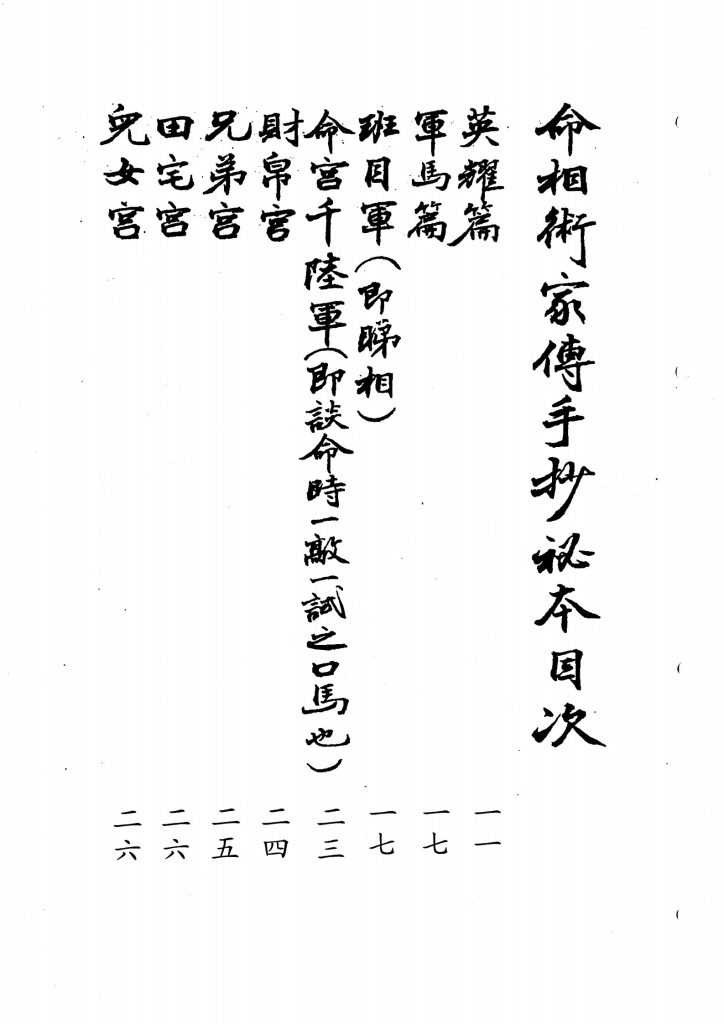 命相術家傳手抄祕本目次
英耀篇 一一
軍馬篇 一七
班目軍(即睇相) 一七
命宮千陸軍(即談命時一敲一試之口馬也) 二三
財帛宮 二四
兄弟宮 二五
田宅宮 二六
兒女宮 二六